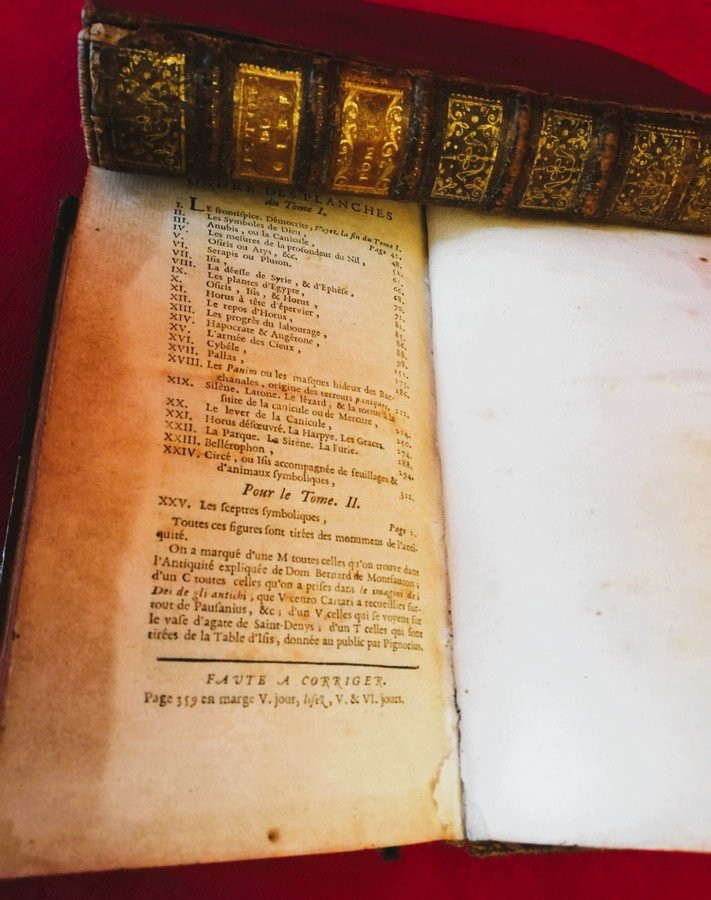 DU
CIEL
TOM
ORDRE DES PLANCHES
du Tome I.
I. LE frontispice. Démocrite, Voyez la fin du Tome I.
II. Les Symboles de Dieu, Page 42.
III. Anubis, ou la Canicule, 48.
IV. Les mesures de la profondeur du Nil,
V. Osiris ou Arys, &c.
VI. Serapis ou Pluton.
VII. Isis,
VIII. La déesse de Syrie, & d'Ephèse,
IX. Les plantes d'Egypte,
X. Osiris, Isis, & Horus,
XI. Horus à tête d'épervier,
XII. Le repos d'Horus,
XIII. Les progrès du labourage,
XIV. Hapocrate & Angérone,
XV. L'armée des Cieux,
XVI. Cybéle,
XVII. Pallas,
XVIII. Les Panim ou les masques hideux des Bac-
chanales, origine des terreurs paniques,
XIX. Silène. Latone. Le lézard, & la tortue à la
suite de la canicule ou de Mercure,
XX. Le lever de la Canicule,
XXI. Horus désœuvré. La Harpye. Les Graces.
XXII. La Parque. La Sirène. La Furie.
XXIII. Bellérophon,
XXIV. Circé, ou Isis accompagnée de feuillages &
d'animaux symboliques, 312.
Pour le Tome. II.
XXV. Les sceptres symboliques, Page 1.
Toutes ces figures sont tirées des monumens de l'anti-
quité.
On a marqué d'une M toutes celles qu'on trouve dans
l'Antiquité expliquée de Dom Bernard de Montfaucon;
d'un C toutes celles qu'on a prises dans le imagini dei
Dei de gli antichi, que V cenzo Cartari a recueillies sur-
tout de Pausanius, &c; d'un V celles qui se voyent sur
le vase d'agate de Saint-Denys; d'un T celles qui sont
tirées de la Table d'Isis, donnée au public par Pignorius.
FAUTE A CORRIGER.
Page 359 en marge V. jour, lisez, V. & VI. jours.